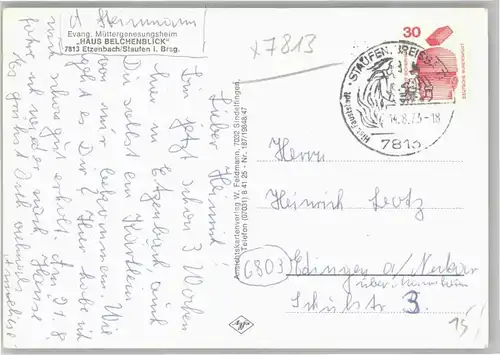 Evang. Müttergenesungsheim
„HAUS BELCHENBLICK"
7813 Etzenbach/Staufen i. Brsg.
x7813
Lieber Heinrich!
Bin jetzt schon 3 Wochen
hier in Etzenbach, und
Du selbst ein Kärtlein
von mir bekommen. Wie
geht es Dir? Hier habe ich
mich schon gut erholt. Am 21.8.
fahre ich wieder nach Hause
Es grüßt Dich vielmals
Herrmann
Antriebskartenverlag W. Feldmann, 7032 Sindelfingen,
Telefon (07031) 8 41 25 - Nr. 187/19848/47
30
DEUTSCHE BUNDESPOST
STAUFEN, BREISGAU
14.8.73-18
7813
Herrn
Heinrich
6803 Edingen a/Neckar
über Mannheim
Schulstr 3.
15